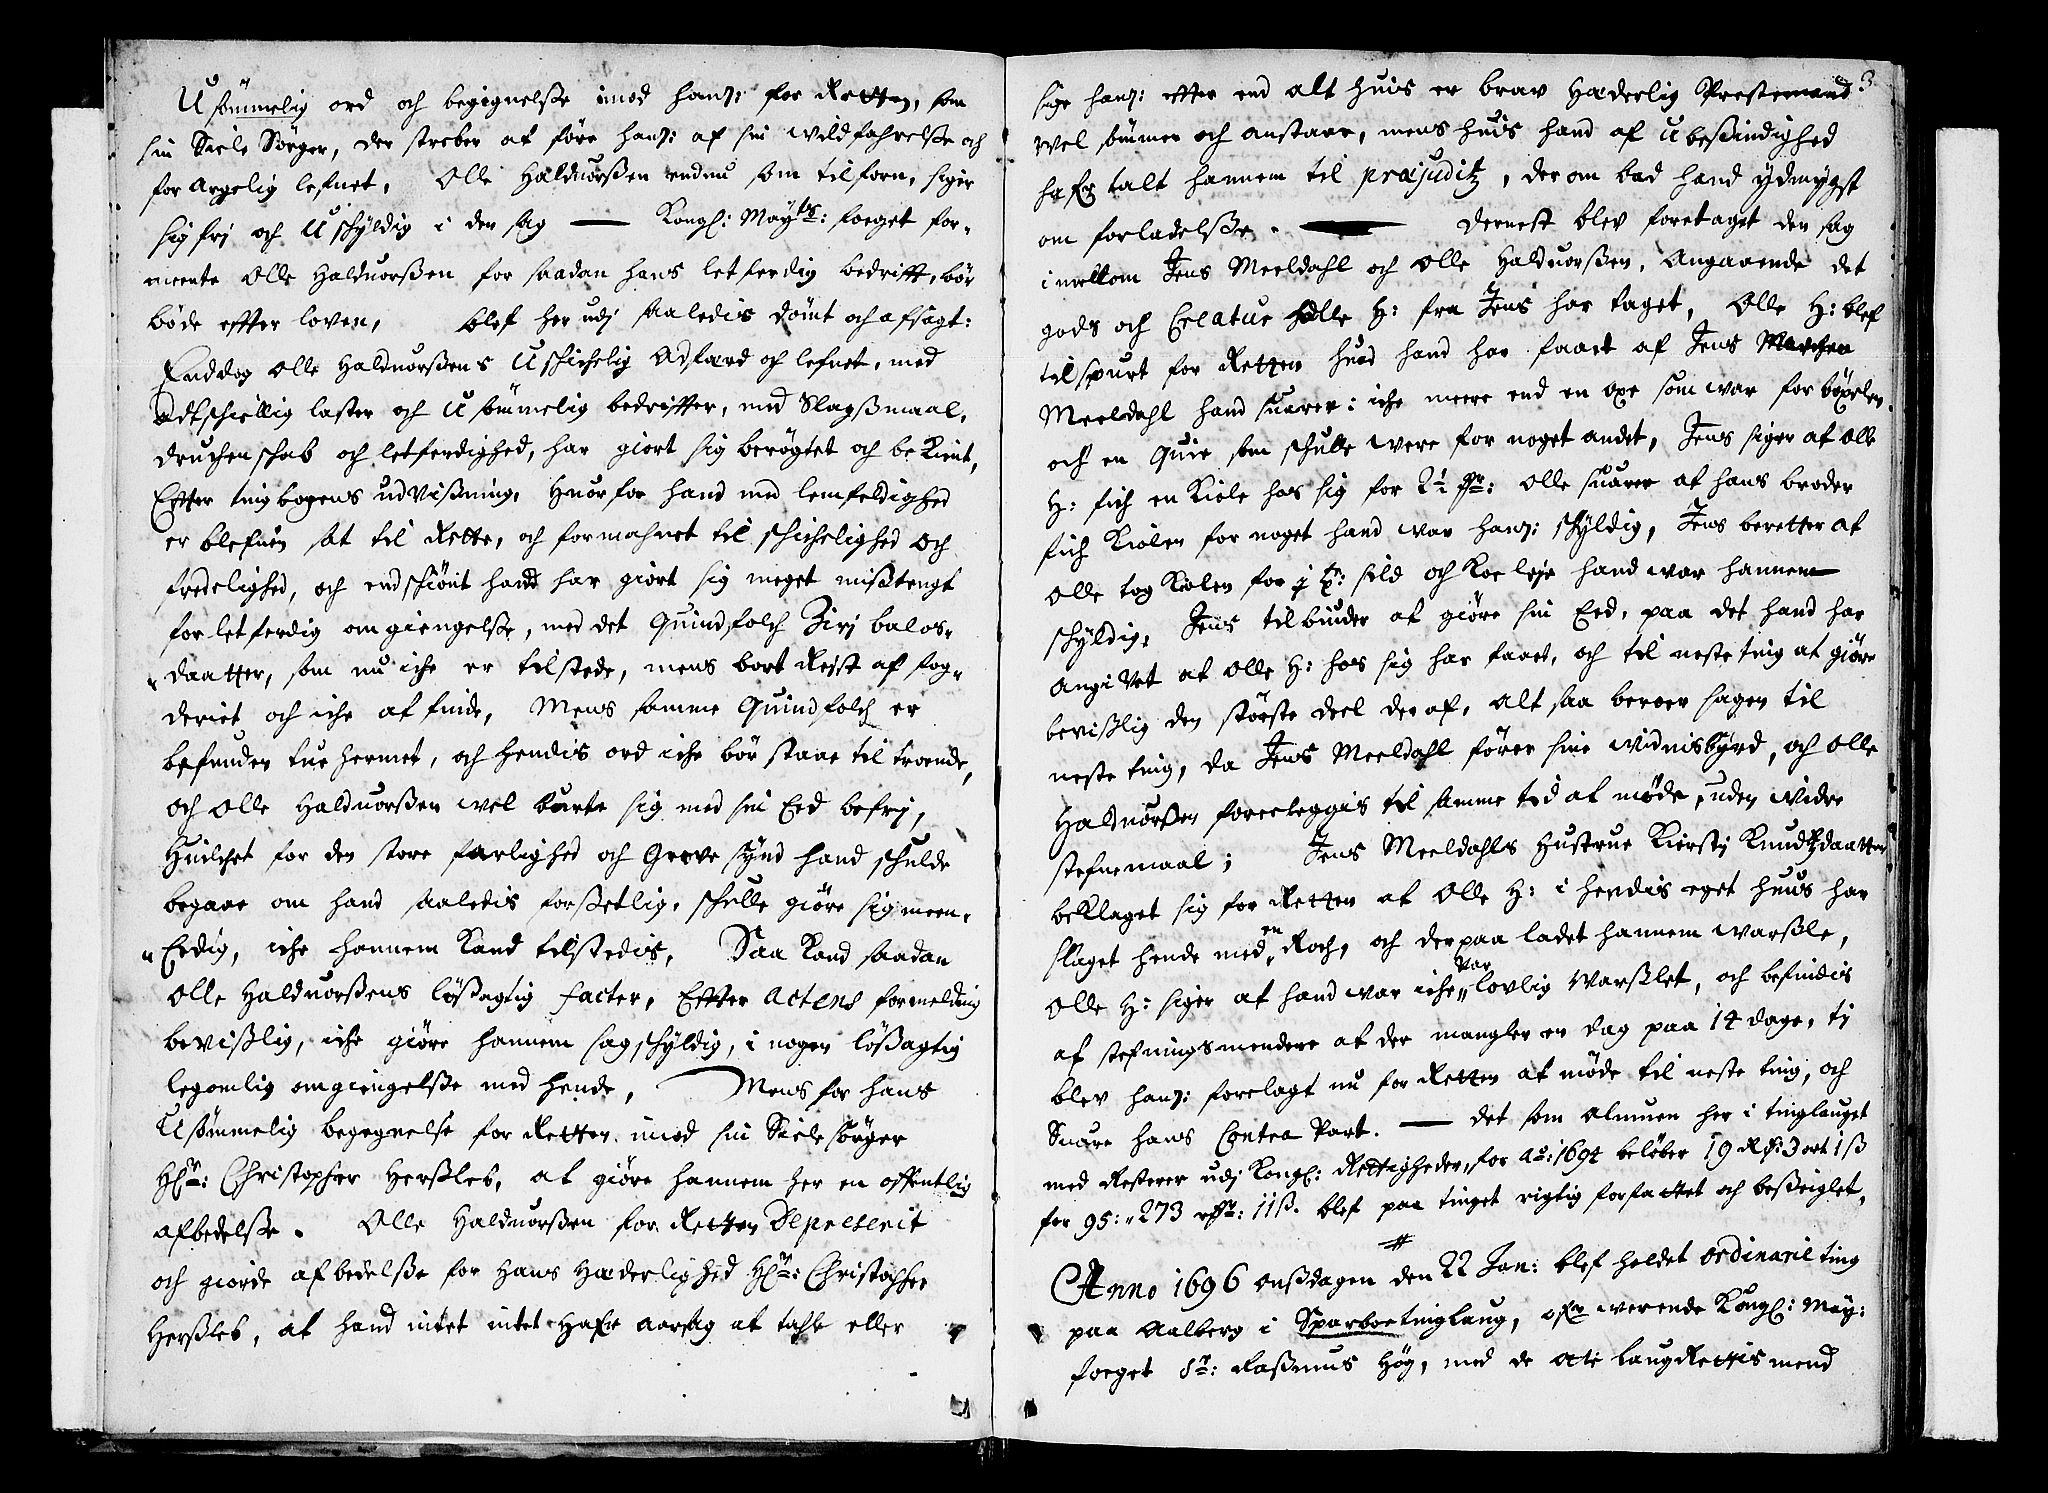 Usömmelig ord och begignelsße imod hanß: for Retten, som
sin Siele Sörger, der streber at före hanß: af sin wildfahrelsße och
forargelig lefnet, Olle Haldvorßen endnu som tilforn, siger
sig frj och Uschÿldig i den sag — Kongl: Maÿts: foeget for-
meente Olle Haldvorßen for saadan hans letferdig bedrifft, bör
böde effter loven, blef her udj saaledis dömt och afsagt:
Enddog Olle Haldvorßens Uschichelig Adfærd och lefnet, med
adtschiellig laster och Usömmelig bedriffter, med Slagsßmaal,
druchenschab och letferdighed, har giort sig berögtet och bekient,
Effter tingbogens udVisßning, Hvorfor hand med lemfeldighed
er blefven sat til Rette, och formahnet til schichelighed och
fredelighed, och endschiönt hand har giort sig meget misßtengt
for letferdig omgiengelsße, med det Quindfolch Zirj balos-
daatter, som nu iche er tilstede, mens bort Reist af fog-
deriet och iche at finde, Mens samme Quindfolch er
befunden tue hermet, och hendis ord iche bör staae til troende,
och Olle Haldvorßen wel burte sig med sin Eed befrj,
Huilchet for den store farlighed och Grove sÿnd hand schulde
begaae om hand saaledis forsßetlig, schulle giöre sig meen-
Eedig, iche hannem kand tilstedis, Saa kand saadan
Olle Haldvorßens lösßagtig facter, Effter Actens formelding
bevisßlig, iche giöre hannem sagschÿldig, i nogen lösßagtig
legomlig omgiengelsße med hende, Mens for hans
Usömmelig begegnelse for Retten imod sin Siele sörger
Hr: Christopher Hersßleb, at giöre hannem her en offentlig
afbedelsße. Olle Haldvorßen for Retten Deprecerit
och giorde afbedelsße for Hans Hæderlighed Hr: Christopher
Hersßleb, at hand intet intet Hafr aarsag at tahle eller
3
sige hanß: effter end alt huis en brav Hæderlig Prestemand
wel sömmer och anstaar, mens huis hand af Ubesßindighed
hafr talt hannem til præjuditz, derom bad hand ÿdmÿgst
om forladelsße. — dernest blev foretaget den sag
imellom Jens Meeldahl och Olle Haldvorßen, Angaaende det
gods och Creatur Olle H: fra Jens har taget, Olle H: blef
tilspurt for Retten huad hand har faaet af Jens
Meeldahl hand suarer: iche meere end en oxe som war for böxelen
och en Quie som schulle were for noget andet, Jens siger at Olle
H: fich en Kiole hos sig for 2½ Olle suarer at hans broder
fich Kiolen for noget hand war hanß: schÿldig, Jens beretter at
Olle tog Kiolen for 1 tr: sild och Koe leje hand war hannem
schÿldig, Jens tilbinder at giöre sin Eed, paa det hand har
angivet at Olle H: hos sig har faaet, och til neste ting at giöre
bevisßlig den störste deel der af, Alt saa beroer sagen til
neste ting, da Jens Meeldahl förer sine widnisbÿrd, och Olle
Haldvorßen foreleggis til samme tid at möde, uden Videre
stefnemaal; Jens Meeldahls Hustrue Kierstj Knudtzdaatter
beklaget sig for Retten at Olle H: i hendis eget huus har
slaget hende med en Roch, och derpaa ladet hannem warsßle,
Olle H: siger at hand war iche var lovlig Warsßlet, och befindis
af stefningsmendene at der mangler en dag paa 14 dage, tj
blev hanß: forelagt nu for Retten at möde til neste ting, och
Suare hans Contra Part. — det som Almuen her i tinglauget
med Resterer udj Kongl: Rettigheder, for Ao: 1694 belöber 19 Rdr: 3 ort 1 ß
for 95: 273 rdr: 11 ß. blef paa tinget rigtig forfattet och besßeiglet,
Anno 1696 Onsßdagen den 22 Jan: blef holdet ordinarie ting
paa Aalberg i Sparboe tinglaug, ofr werende Kongl: Maÿ:
foeget Sr: Rasßmus Höÿ, med de otte laugRettis mend